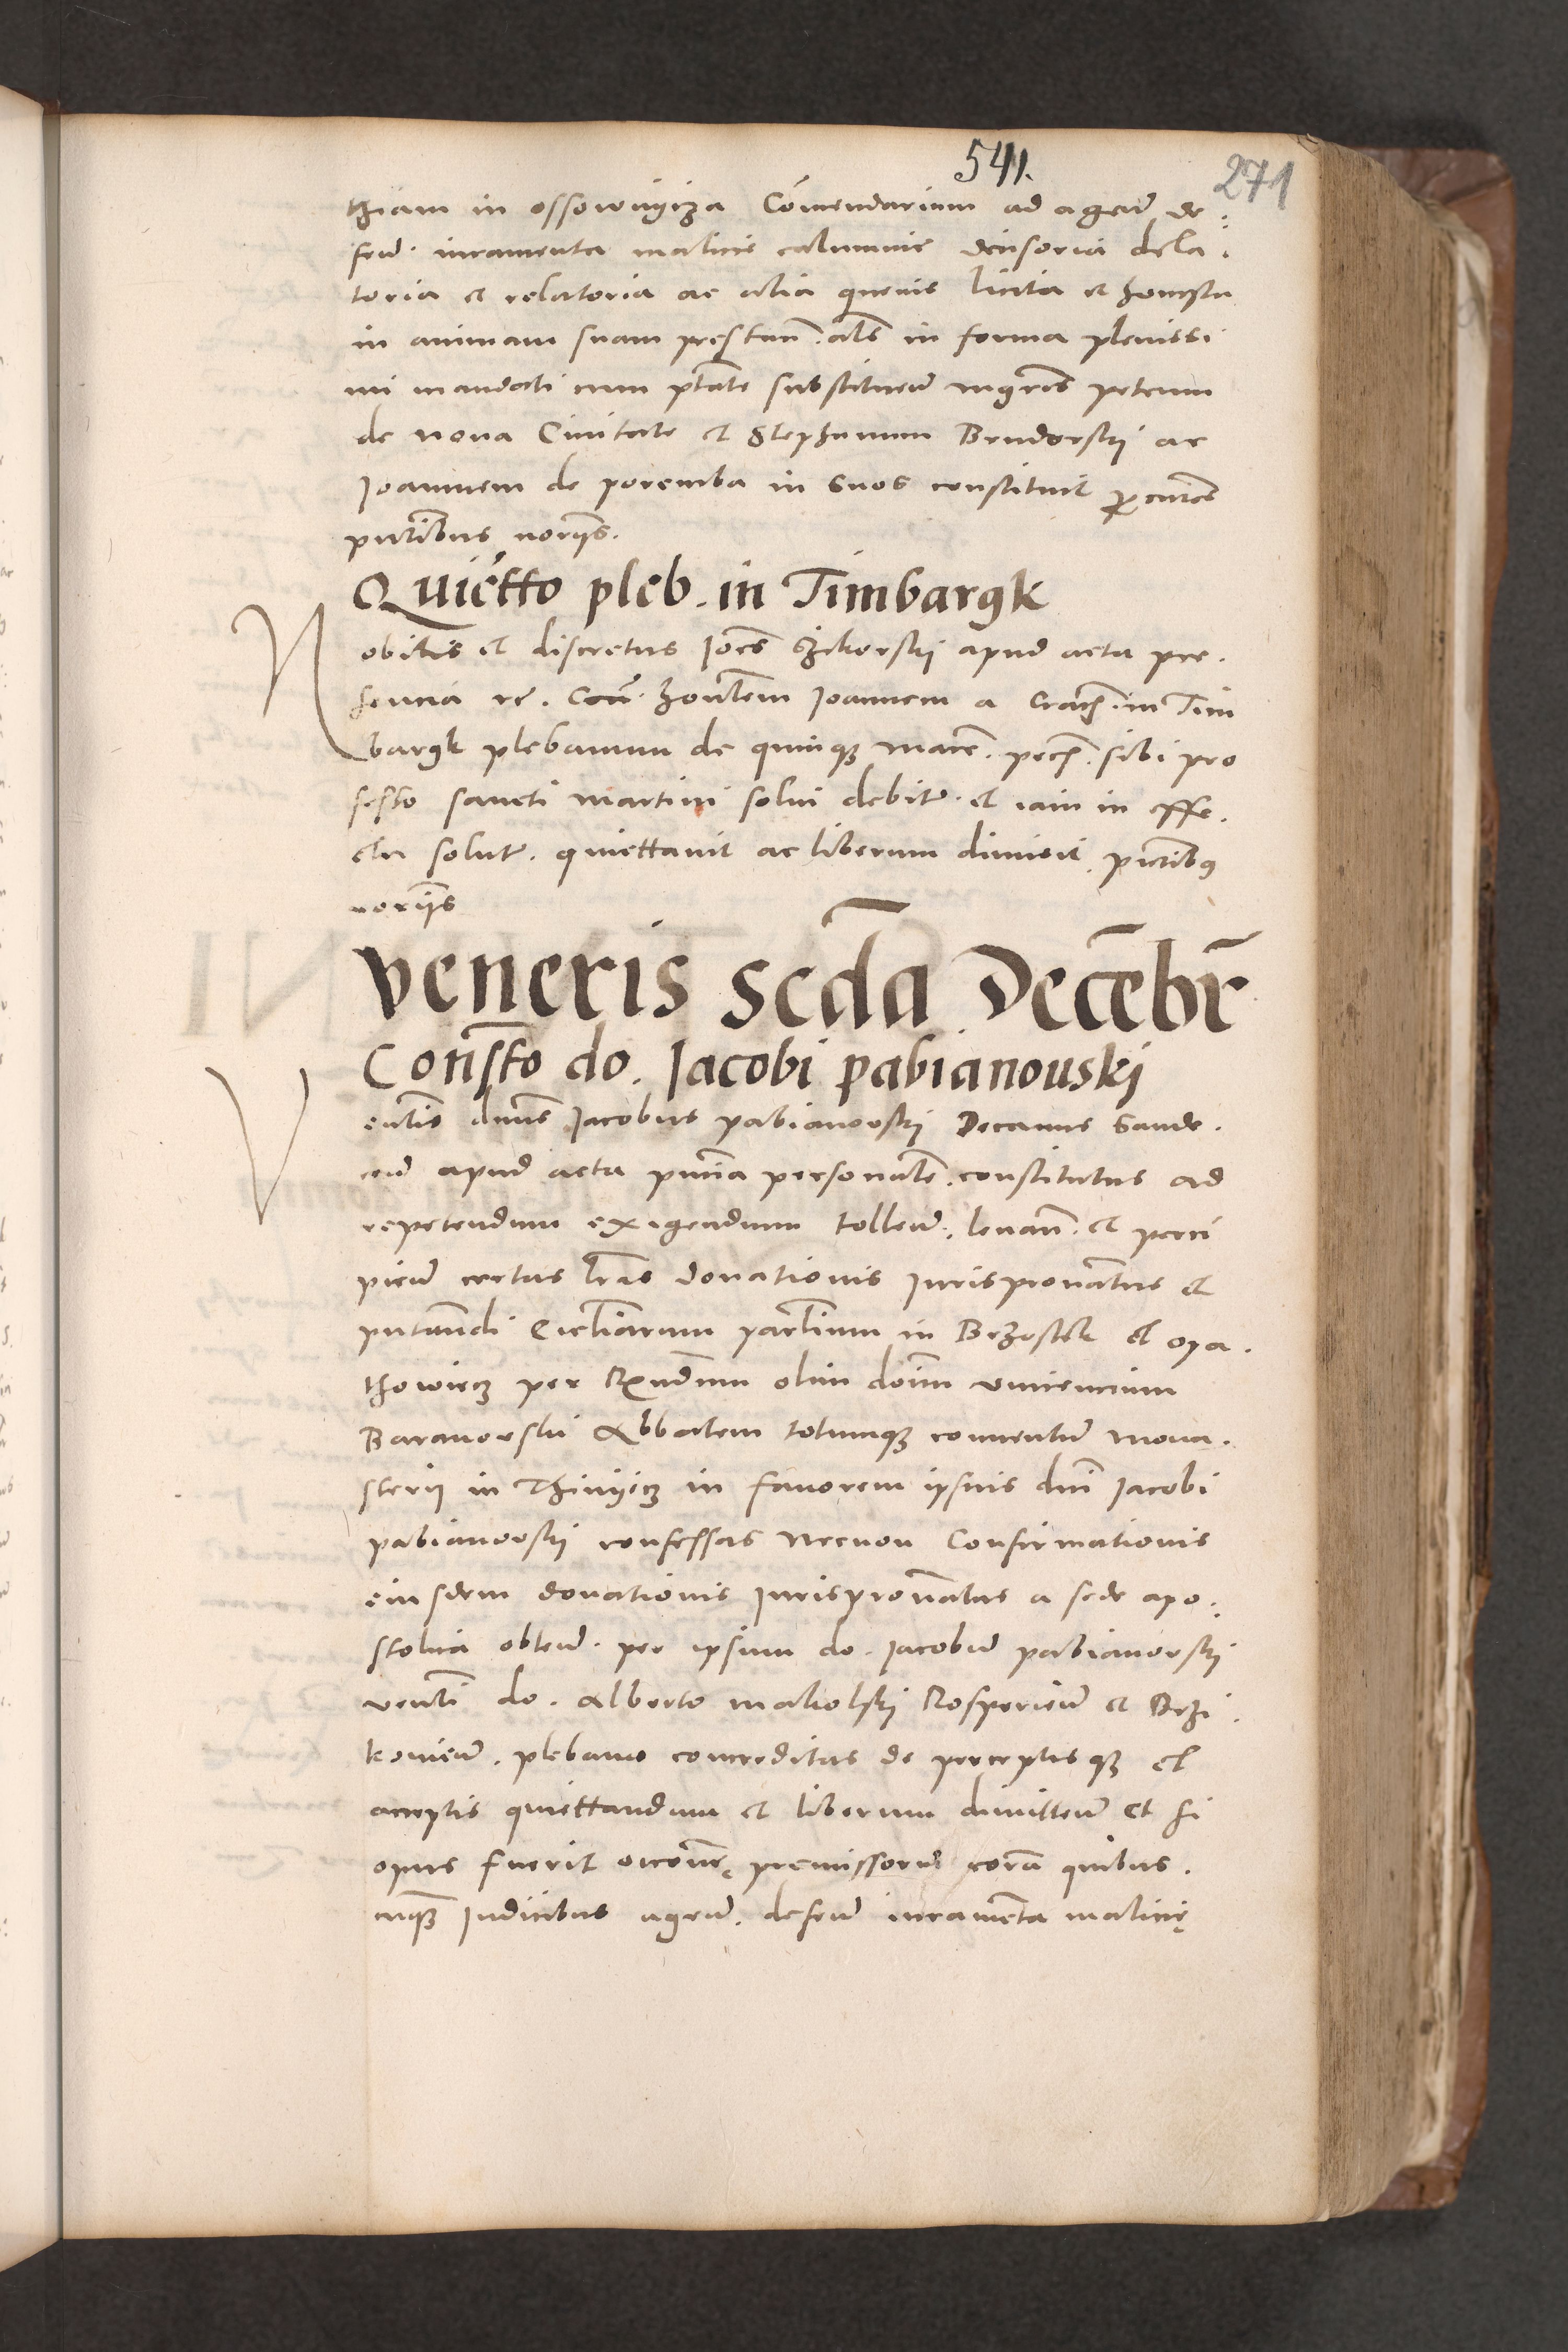 541.
271
thiam in ossownyicza Comendarium ad agen̄ de:
fen̄. iuramenta malicie calumnie decisoria dela.
toria et relatoria ac alia quevis licita et honesta
in animam suam prestan̄. als in forma plenissi
mi mandati cum ptāte substituen̄ mgr̄os petrum
de nova Civitate et Stephanum Brudorskj ac
Joannem de poremba in suos constituit procutōres
pntībus norijs.
Quietto pleb. in Timbargk
Nobilis et discretus Joēs Szikorskj apud acta pre.
sencia re. Con̄. honlem Joannem a Crach. in Tim
bargk plebanum de quinqȝ marc. pech. sibi pro
festo sancti martini solvi debit. et iam in effe.
ctu solut. quiettavit ac liberum dimisit. pntībꝰ
norijs
Veneris scda Decēbr̄
Constto do. Jacobi pabianouskj
Venlis dnūs Jacobus pabianovskj Decanus Sande.
cen̄ apud acta pn̄cia personalr̄. constitutus ad
repetendum exigendum tollen̄. levan̄. et perci
pien̄ certas lrās donationis Jurispronatus et
pntandi Ecclīarum parlīum in Brzostek et opa.
thowiecz per Rndum olim dom̄ vincencium
Baranovski Abbatem totumqȝ conventum mona.
sterij in Thinyecz in favorem ipsius dnī Jacobi
pabianovskj confessas necnon Confirmationis
eiusdem donationis Jurispronatus a sede apo.
stolica obten̄. per ipsum do. Jacobum pabianovskj
venlī do. Alberto makolskj Rosperien̄ et Brzi.
kovien̄. plebano concreditas de perceptisqȝ et
acceptis quiettandum et liberum dimitten̄ et si
opus fuerit occoīne premissorum coram quibus.
cunqȝ Judicibus agen̄. defen̄ iuramēta malicię